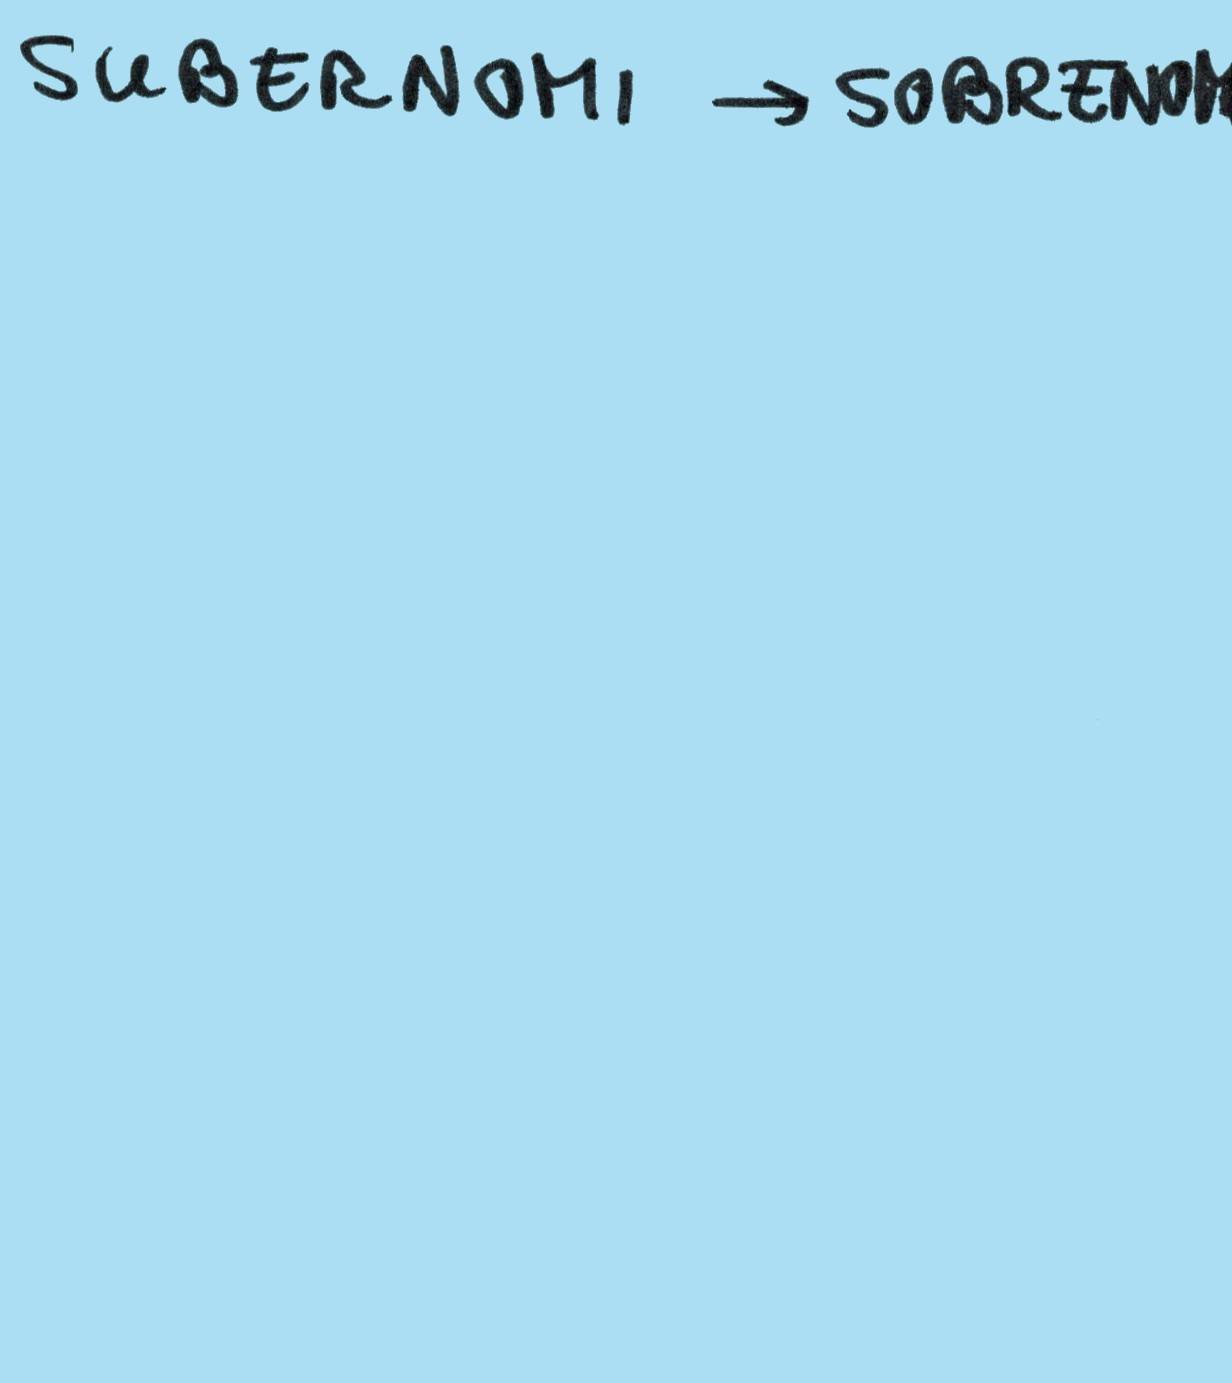 SUBERNOMI → SOBRENOM